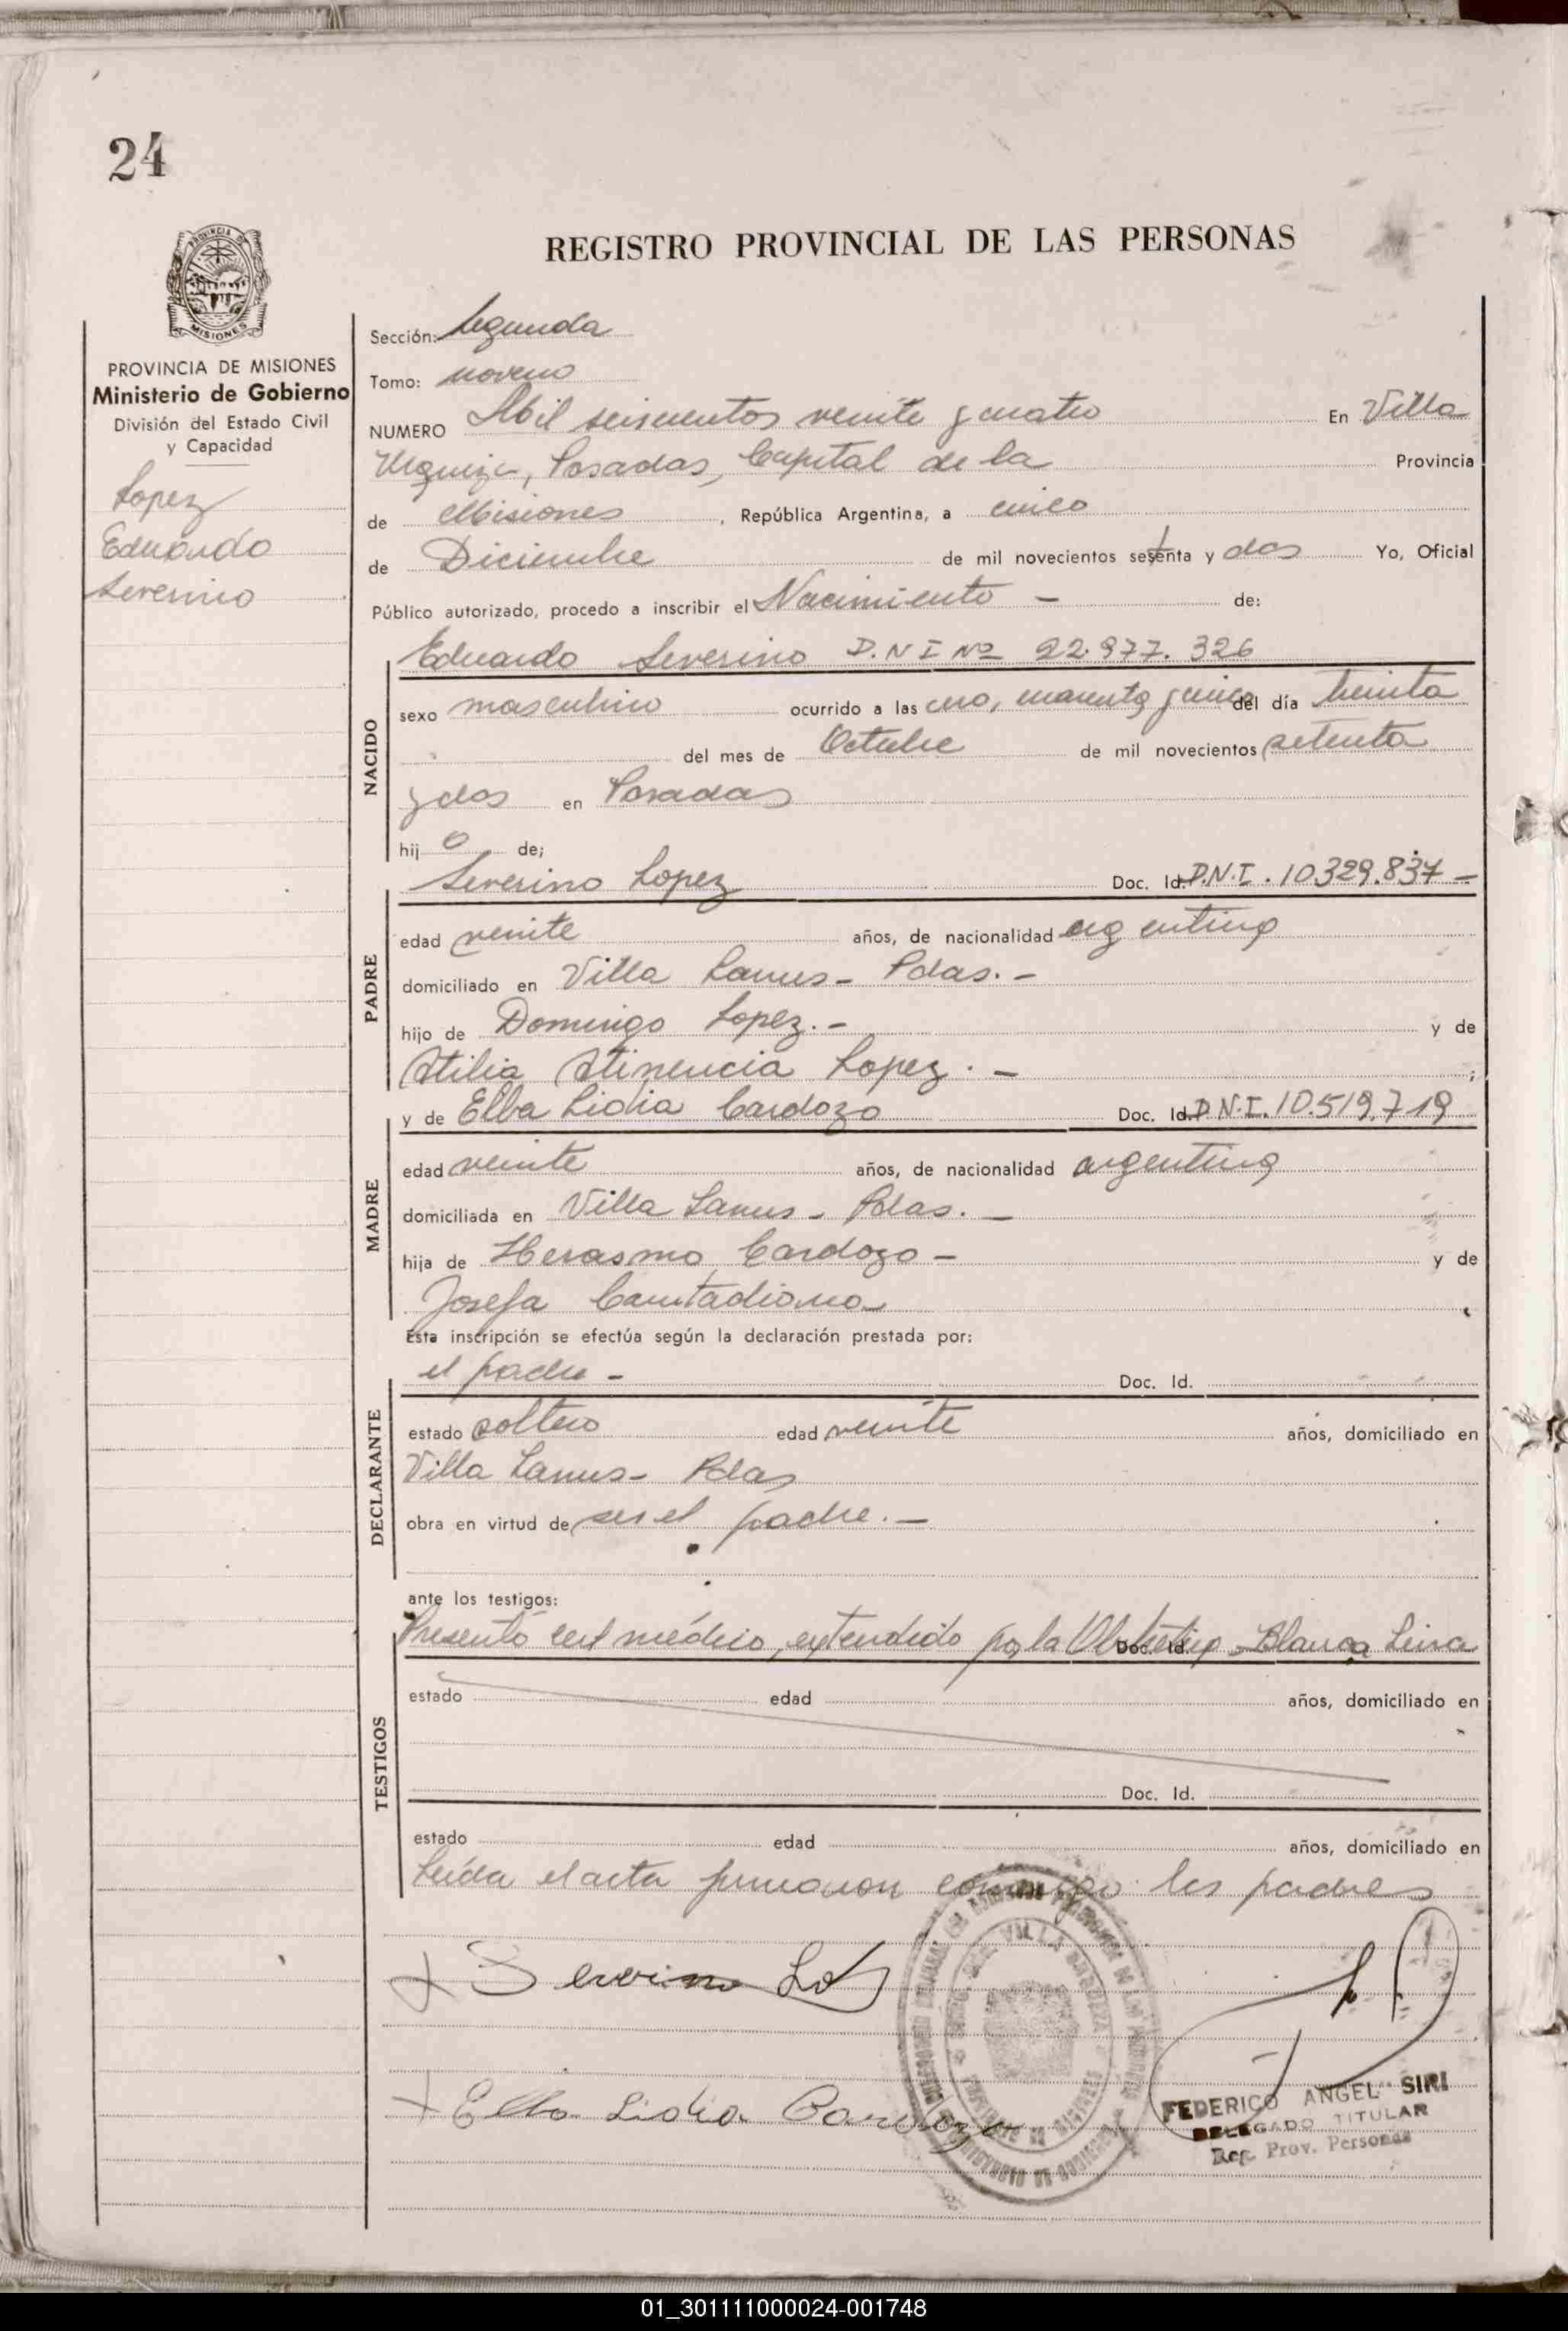 24
PROVINCIA DE
MISIONES
PROVINCIA DE MISIONES
Ministerio de Gobierno
División del Estado Civil
y Capacidad
Lopez
Eduardo
Severino
REGISTRO PROVINCIAL DE LAS PERSONAS
Sección: Segunda
Tomo: noveno
NUMERO Mil seiscientos veinte y cuatro En Villa
Urquiza, Posadas, Capital de la Provincia
de Misiones, República Argentina, a cinco
de Diciembre de mil novecientos setenta y dos Yo, Oficial
Público autorizado, procedo a inscribir el Nacimiento - de:
Eduardo Severino D.N I Nº 22.977.326
NACIDO
sexo masculino ocurrido a las cero, cuarenta y cinco del día treinta
del mes de Octubre de mil novecientos setenta
y dos en Posadas
hij o de;
Severino Lopez Doc. Id. D.N.I. 10.329.837 -
PADRE
edad veinte años, de nacionalidad argentina
domiciliado en Villa Lanus - Pdas. -
hijo de Domingo Lopez. - y de
Atilia Lopez. - ;
y de Elba Lidia Cardozo Doc. Id. D.N.I. 10.519.719
MADRE
edad veinte años, de nacionalidad argentina
domiciliada en Villa Lanus - Pdas. -
hija de Herasmo Cardozo - y de
Josefa
Esta inscripción se efectúa según la declaración prestada por:
el padre - Doc. Id.
DECLARANTE
estado soltero edad veinte años, domiciliado en
Villa Lanus - Pdas
obra en virtud de ser el padre. -
ante los testigos:
Presentó cert médico, extendido por la Obstetrica Blanca Leiva Doc. Id.
TESTIGOS
estado edad años, domiciliado en
Doc. Id.
estado edad años, domiciliado en
Leída el acta firmaron conmigo los padres
Severino
Elba Lidia Cardozo
FEDERICO ANGEL SIRI
DELEGADO TITULAR
Reg. Prov. Personas
01_301111000024-001748